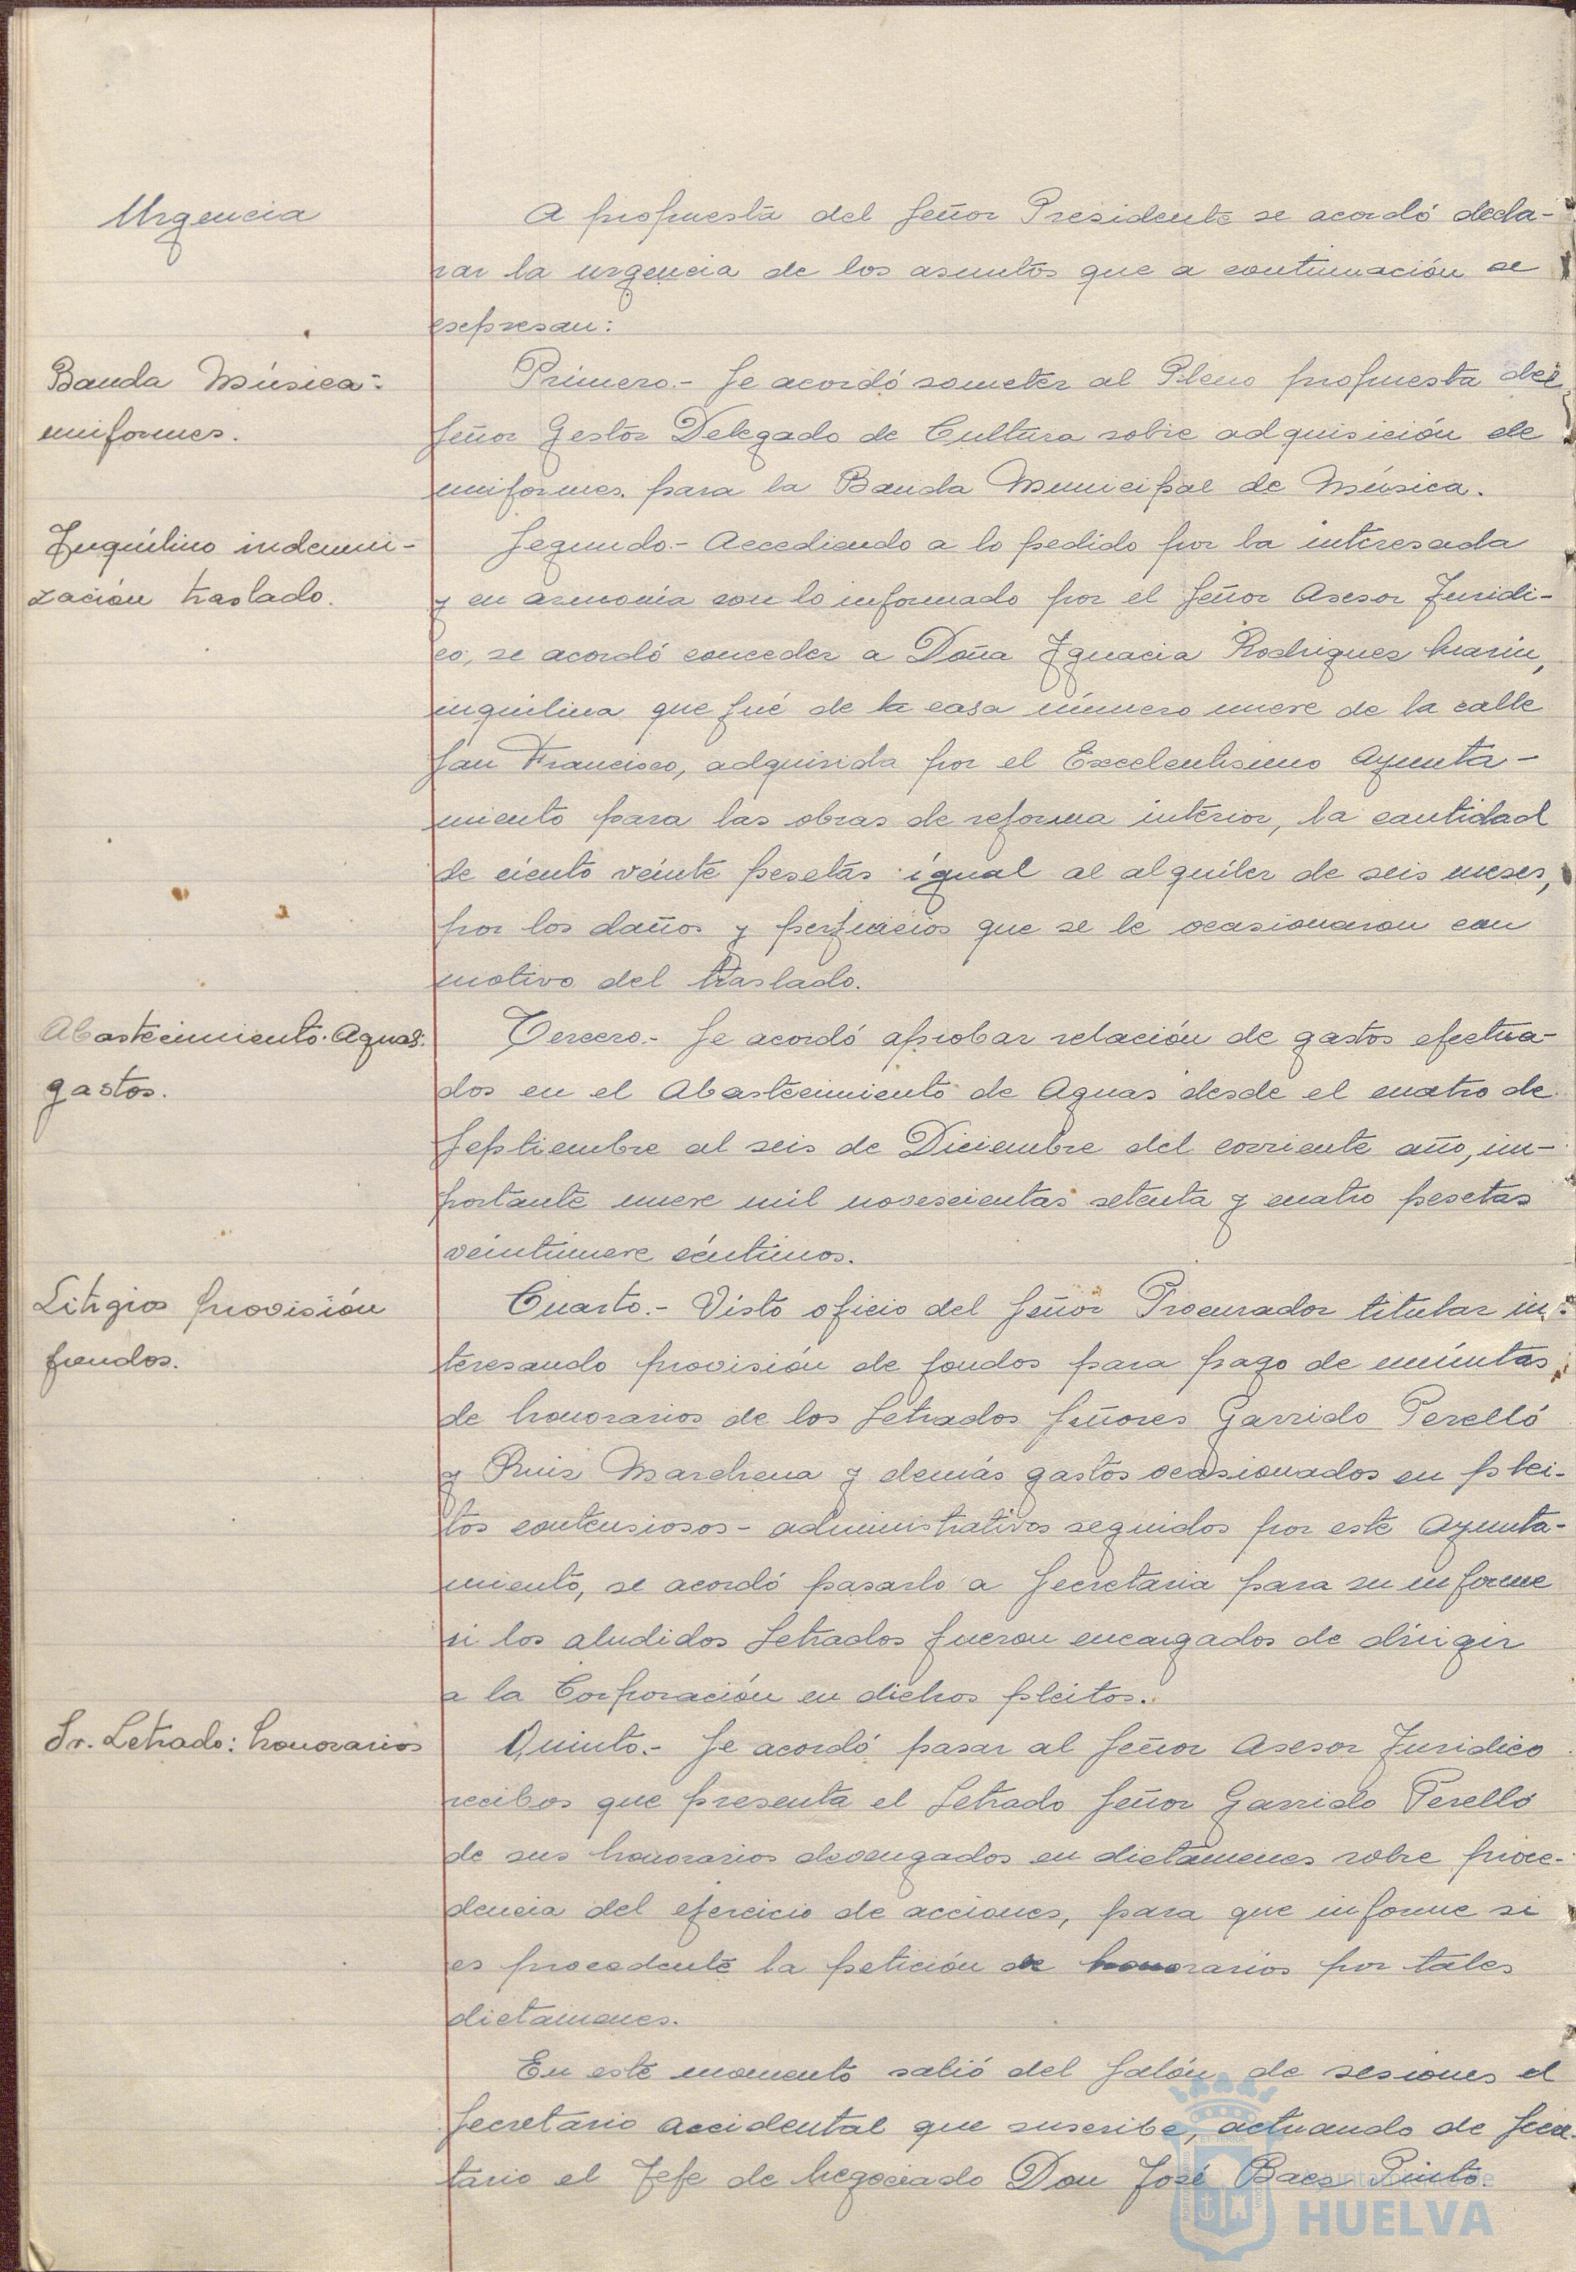 Urgencia
A propuesta del Señor Presidente se acordó decla-
rar la urgencia de los asuntos que a continuación se
expresan:
Banda Música:
uniformes.
Primero.- Se acordó someter al Pleno propuesta del
Señor Gestor Delegado de Cultura sobre adquisición de
uniformes para la Banda Municipal de Música.
Inquilino indemni-
zación traslado.
Segundo.- Accediendo a lo pedido por la interesada
y en armonía con lo informado por el Señor Asesor Juridi-
co, se acordó conceder a Doña Ignacia Rodriguez Marin,
inquilina que fué de la casa número nueve de la calle
San Francisco, adquirida por el Excelentisimo Ayunta-
miento para las obras de reforma interior, la cantidad
de ciento veinte pesetas igual al alquiler de seis meses,
por los daños y perjuicios que se le ocasionaron con
motivo del traslado.
Abastecimiento Aguas:
gastos.
Tercero.- Se acordó aprobar relación de gastos efectua-
dos en el Abastecimiento de Aguas desde el cuatro de
Septiembre al seis de Diciembre del corriente año, im-
portante nueve mil novescientas setenta y cuatro pesetas
veintinueve céntimos.
Litigios provisión
fondos.
Cuarto.- Visto oficio del Señor Procurador titular in-
teresando provisión de fondos para pago de minutas
de honorarios de los Letrados Señores Garrido Perelló
y Ruiz Marchena y demás gastos ocasionados en plei-
tos contensiosos-administrativos seguidos por este Ayunta-
miento, se acordó pasarlo a Secretaria para su informe
si los aludidos Letrados fueron encargados de dirigir
a la Corporación en dichos pleitos.
Sr. Letrado: honorarios
Quinto.- Se acordó pasar al Señor Asesor Juridico
recibos que presenta el Letrado Señor Garrido Perelló
de sus honorarios devengados en dictamenes sobre proce-
dencia del ejercicio de acciones, para que informe si
es procedente la petición de honorarios por tales
dictamenes.
En este momento salió del Salón de sesiones el
Secretario accidental que suscribe, actuando de Secre-
tario el Jefe de Negociado Don José Baez Pinto.
HUELVA